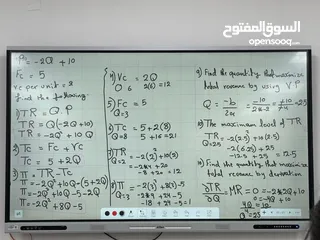 السوق المفتوح
P = -2Q + 10
FC = 5
VC per unit = 2
Find the following:
1) TR = Q.P
TR = Q(-2Q + 10)
TR = -2Q² + 10Q
2) TC = FC + VC
TC = 5 + 2Q
3) π = TR - TC
π = -2Q² + 10Q - (5+2Q)
π = -2Q² + 10Q - 5 - 2Q
π = -2Q² + 8Q - 5
4) VC = 2Q
2(6) = 12
5) FC = 5
Q=3
6) TC = 5 + 2(8)
Q=8
5 + 16 = 21
7) TR
Q=2
8) π = -2(3)² + 8(3) - 5
Q=3
-18 + 24 - 5 = 1
9) Find the quantity that maximize
total revenue by using VP
Q = -b/2a
The maximum level of TR
TR = -2(2.5)² + 10(2.5)
-2(6.25) + 25
-12.5 + 25 = 12.5
10) Find the quantity that maximize
total revenue by derivation
∂TR/∂Q = MR = 0